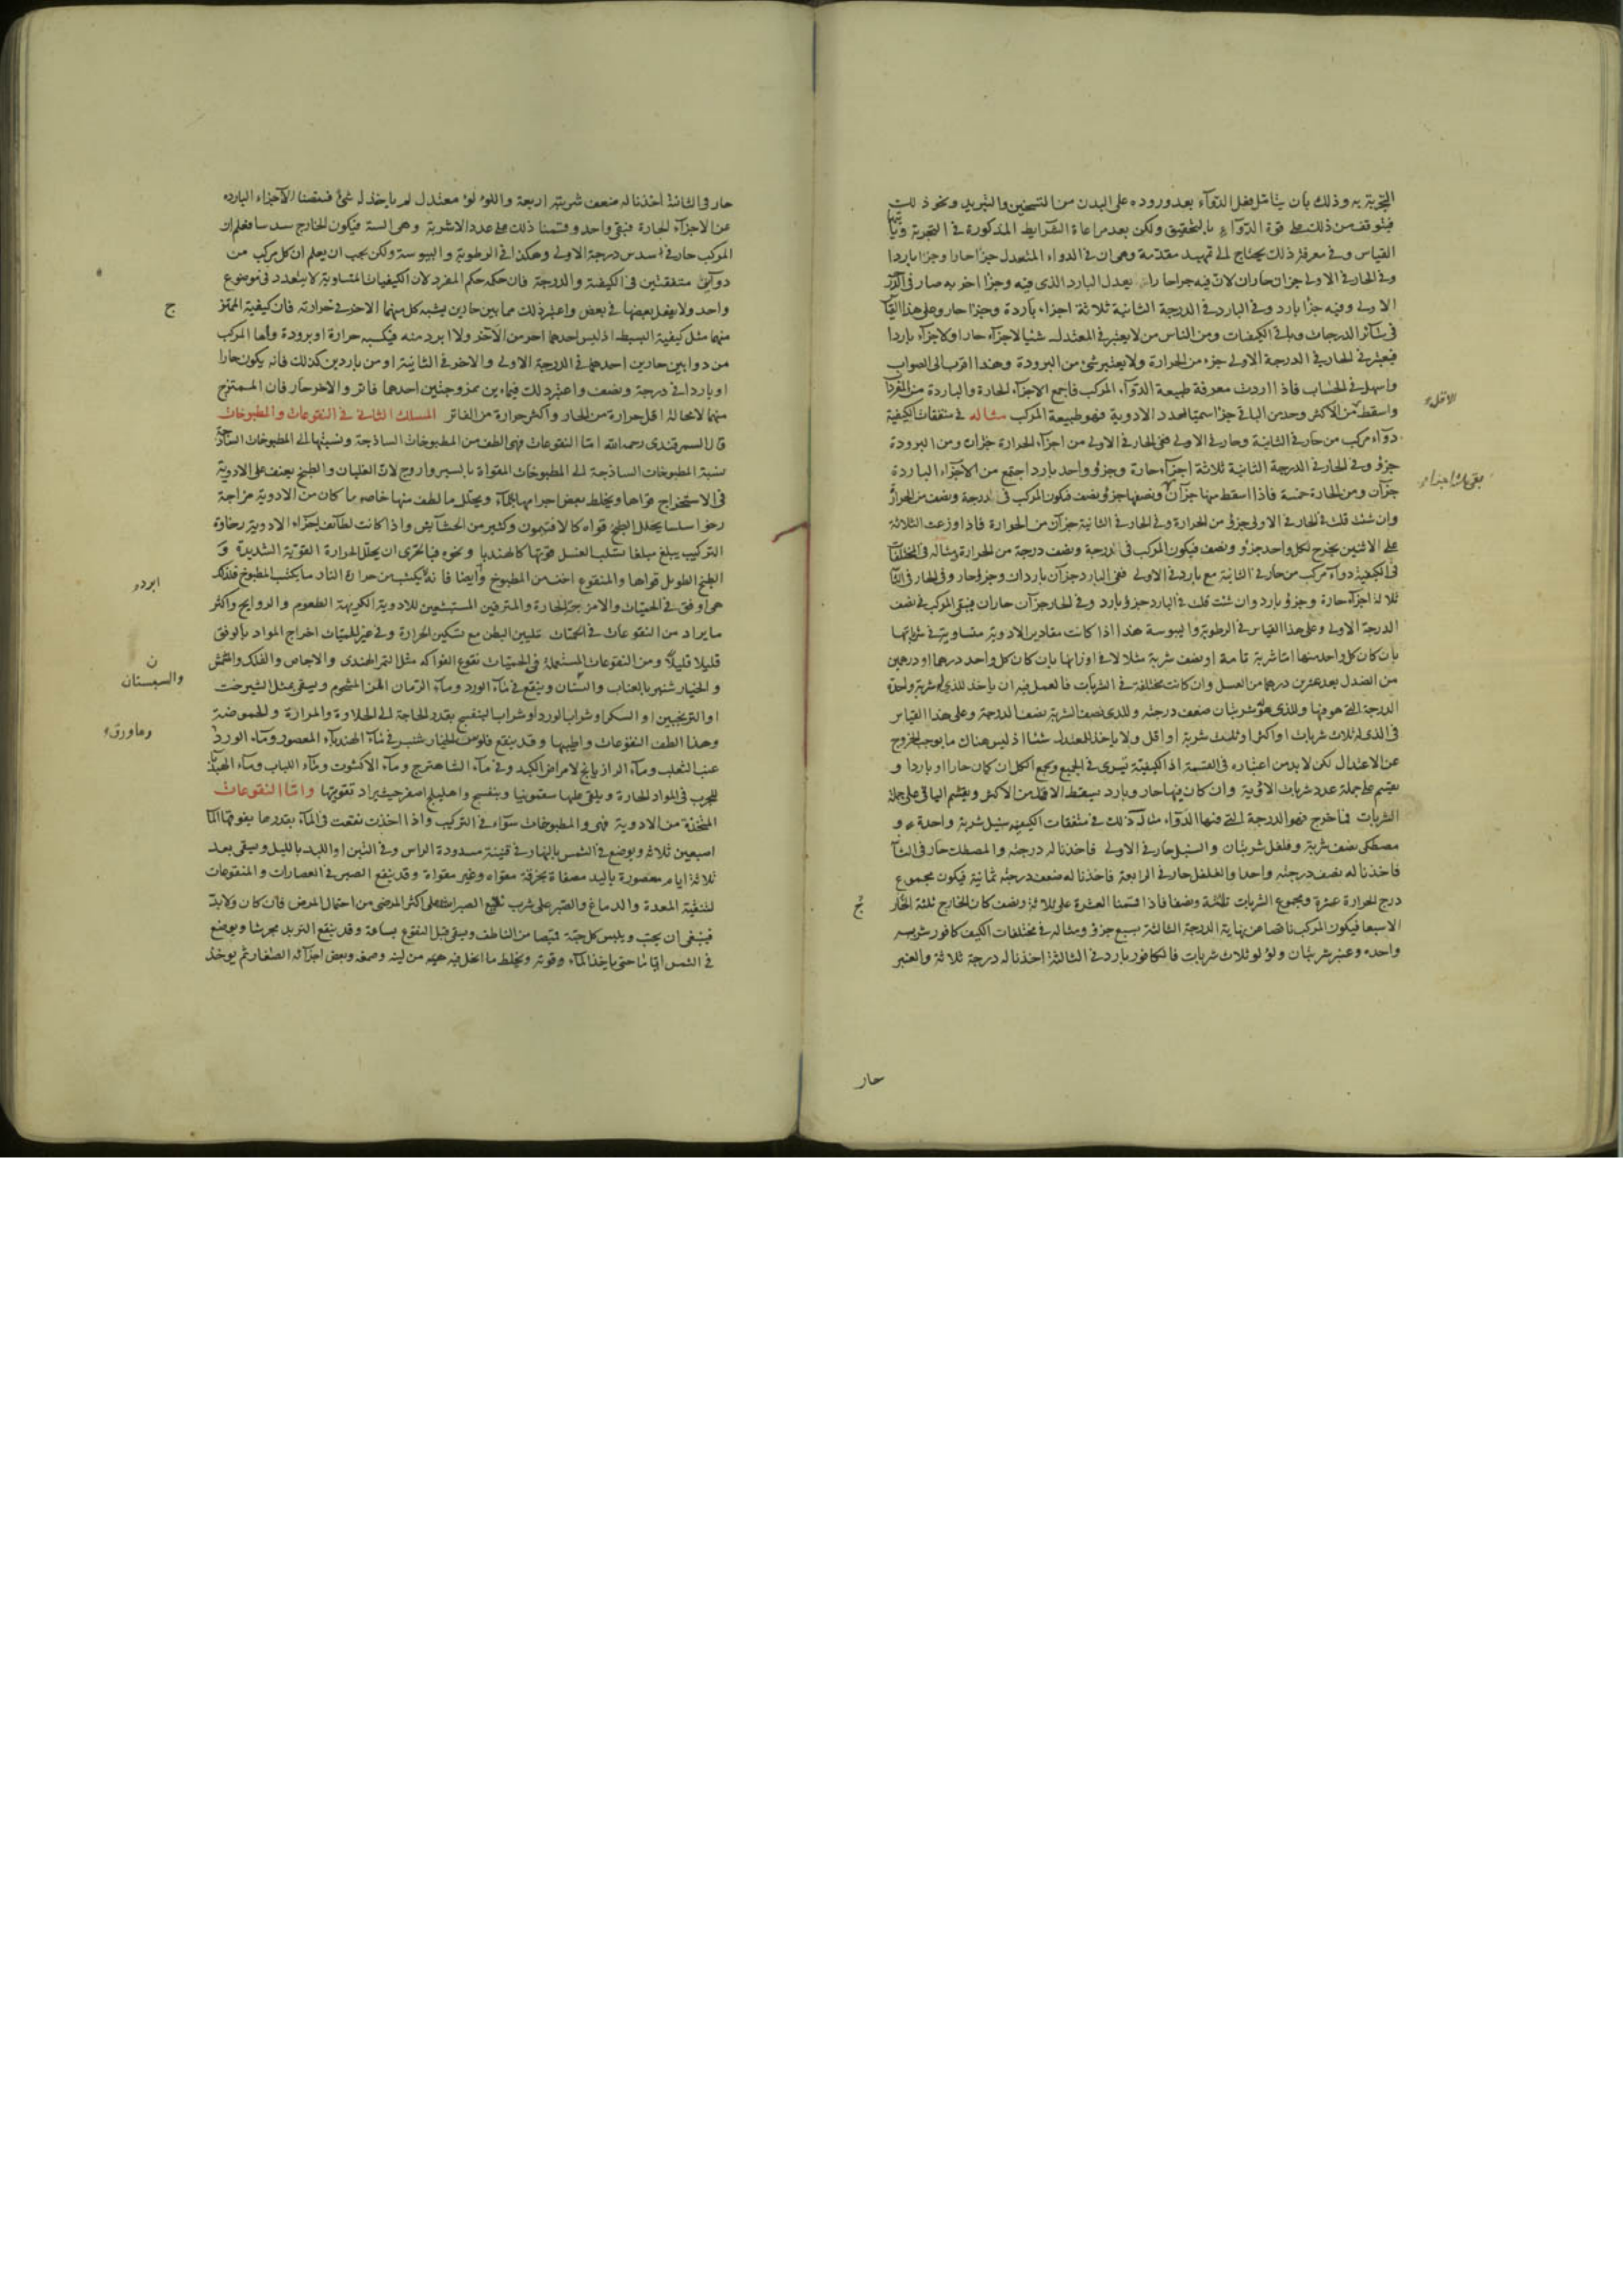 التجربة به وذلك بأن يتأمل فعل الدوآء بعد وروده على البدن من التسخين والتبريد ونحو ذلك
فيتوقف من ذلك على قوة الدوآء بالتحقيق ولكن بعد مراعاة الشرايط المذكورة في التجربة
القياس وفي معرفة ذلك يحتاج الى تمهيد مقدمة وهي ان في الدواء المعتدل جزا حارا وجزا باردا
وفي الحار في الاولى جزآن حاران لان فيه جزا حارا يعدل البارد الذي فيه وجزا اخر به صار في
الاولى وفيه جزا بارد وفي البارد في الدرجة الثانية ثلاثة اجزاء باردة وجزا حار وعلى هذا
في سائر الدرجات وباقي الكيفيات ومن الناس من لا يعتبر في المعتدل شيئا لا جزآء حارا ولا جزآء باردا
فيعتبر في الحار في الدرجة الاولى جزء من الحرارة ولا يعتبر شئ من البرودة وهذا اقرب الى الصواب
واسهل في الحساب فاذا اردت معرفة طبيعة الدوآء المركب فاجمع الاجزآء الحارة والباردة من
واسقط من الاكثر وخذ من الباقي جزا سميا لعدد الادوية فهو طبيعة المركب مثاله في متفقات الكيفية
دوآء مركب من حار في الثانية وحار في الاولى ففي الحار في الاولى من اجزآء الحرارة جزآن ومن البرودة
جزؤ وفي الحار في الدرجة الثانية ثلاثة اجزآء حارة وجزؤ واحد بارد اجتمع من الاجزاء الباردة
جزآن ومن الحارة خمسة فاذا اسقط منها جزآن ونصفها جزؤ ونصف فيكون المركب في درجة ونصف من الحرارة
وان شئت قلت في الحار في الاولى جزؤ من الحرارة وفي الحار في الثانية جزآن من الحرارة فاذا وزعت الثلاثة
على الاثنين يخرج لكل واحد جزؤ ونصف فيكون المركب في درجة ونصف درجة من الحرارة ومثاله في
في الكيفية دوآء مركب من حار في الثانية مع بارد في الاولى ففي البارد جزآن باردان وجزؤ حار وفي الحار في
ثلاثة اجزآء حارة وجزؤ بارد وان شئت قلت في البارد جزؤ بارد وفي الحار جزآن حاران فيبقى المركب في نصف
الدرجة الاولى وعلى هذا القياس في الرطوبة واليبوسة هذا اذا كانت مقادير الادوية متساوية في شرباتها
بأن كان كل واحد منها اما شربة تامة او نصف شربة مثلا لا في اوزانها بان كان كل واحد درهما او درهمين
وان كانت مختلفة في الشربات فالعمل فيه ان ياخذ للذي له شربة واحدة
الدرجة التي هو فيها وللذي هو شربتان ضعف درجته وللذي نصف الشربة نصف الدرجة وعلى هذا القياس
في الذي له ثلاث شربات او اكثر او ثلث شربة او اقل ولا ياخذ للمعتدل شيئا اذ ليس هناك ما يوجب الخروج
عن الاعتدال لكن لا بد من اعتباره في القسمة اذ الكيفية تسرى في الجميع ويجمع الكل ان كان حارا او باردا و
يقسم على جملة عدد شربات الادوية وان كان فيها حار وبارد يسقط الاقل من الاكثر ويقسم الباقي على جملة
الشربات فما خرج فهو الدرجة التي فيها الدواء مثال ذلك في متفقات الكيفية سنبل شربة واحدة و
مصطكى نصف شربة وفلفل شربتان والسنبل حار في الاولى فاخذنا له درجته والمصطكى حار في
فاخذنا له نصف درجته واحدا والفلفل حار في الرابعة فاخذنا له ضعف درجته ثمانية فيكون مجموع
درج الحرارة عشرة ومجموع الشربات ثلثة ونصفا فاذا قسمنا العشرة على ثلاثة ونصف كان الخارج ثلثة
الا سبعا فيكون المركب ناقصا عن نهاية الدرجة الثالثة بسبع جزؤ ومثاله في مختلفات الكيف كافور شربة
واحدة وعنبر شربتان ولؤلو ثلاث شربات فالكافور بارد في الثالثة اخذنا له درجة ثلاثة والعنبر
حار
حار في الثانية اخذنا له ضعف شربته اربعة واللؤلؤ معتدل لم ياخذ له شئ فنقصنا الاجزاء البارده
عن الاجزآء الحارة فبقى واحد وقسمنا ذلك على عدد الاشربة وهي الستة فيكون الخارج سدسا فعلم ان
المركب حار في سدس درجة الاولى وهكذا في الرطوبة واليبوسة ولكن يجب ان يعلم ان كل مركب من
دوآئين متفقتين في الكيفية والدرجة فان حكمه حكم المفرد لان الكيفيات المتساوية لا يتعدد في موضوع
واحد ولا يفعل بعضها في بعض واعتبر ذلك مما بين حارين يشبه كل منهما الاخر في حرارته فان كيفية
منهما مثل كيفية البسيط اذ ليس احدهما احر من الآخر ولا ابرد منه فيكسبه حرارة او برودة واما المركب
من دوايين حارين احدهما في الدرجة الاولى والاخر في الثانية او من باردين كذلك فانه يكون حارا
او باردا في درجة ونصف واعتبر ذلك فيما بين ممزوجتين احدهما فاتر والاخر حار فان الممتزج
منهما لا محالة اقل حرارة من الحار واكثر حرارة من الفاتر المسلك الثاني في النقوعات والمطبوخات
قال السمرقندي رحمه الله اما النقوعات فهي الطف من المطبوخات الساذجة ونسبتها الى المطبوخات
نسبة المطبوخات الساذجة الى المطبوخات المقواة بالسير واروج لان الغليان والطبخ يعنف على الادوية
في الاستخراج قواها ويخلط بعض اجرامها بالمآء ويحلل ما لطف منها خاصه ما كان من الادوية مزاجه
رخوا سلسا يحلل الطبخ قواه كالافتيمون وكثير من الحشآيش واذا كانت لطآئف اجزآء الادوية رخاوة
التركيب يبلغ مبلغا سلب الغسل قوتها كالهندبا ونحوه فبالحرى ان يحلل الحرارة القوية الشديدة و
الطبخ الطويل قواها والمنقوع اخف من المطبوخ وايضا فانه لا يكتسب من حرارة النار ما يكتسب المطبوخ فلذلك
هي اوفق في الحميات والامزجة الحارة والمترفين المستبشعين للادوية الكريهة الطعوم والروايح واكثر
ما يراد من النقوعات في الحميات تليين البطن مع تسكين الحرارة وفي غير الحميات اخراج المواد بالرفق
قليلا قليلا ومن النقوعات المستعملة في الحميات نقوع الفواكه مثل التمر الهندي والاجاص والفلك والمشمش
والخيار شنبر بالعناب وينقع في مآء الورد ومآء الرمان ويسقى بمثل الشيرخشت
او الترنجبين او السكر او شراب الورد او شراب البنفسج بقدر الحاجة الى الحلاوة والمرارة والحموضة
وهذا الطف النقوعات واطيبها وقد ينقع فلوس الخيار شنبر في مآء الهندبآء المعصور ومآء الورد
عنب الثعلب ومآء الرازيانج لامراض الكبد وفي مآء الشاهترج ومآء الاكشوث ومآء اللباب ومآء
للجرب في المواد الحارة ويلقى عليها سقمونيا وبنفسج واهليلج اصفر حيث يراد تقويتها واما النقوعات
المتخذة من الادوية فهي والمطبوخات سوآء في التركيب واذا اخذت نقعت في المآء بقدر ما يفوقها
اصبعين ثلاثة ويوضع في الشمس بالنهار في قنينة مسدودة الراس وفي التبن او اللبد بالليل ويسقى بعد
ثلاثة ايام معصورة باليد مصفاة بخرقة مقواه وغير مقواة وقد ينقع الصبر في العصارات والمنقوعات
لتنقية المعدة والدماغ والصبر على شرب نقيع الصبر اشق على اكثر المرضى من احتمال المرض فان كان ولا بد
فينبغى ان يحبب ويلبس كل حبة قميصا من الناطف ويسقى قبل النقوع بساعة وقد ينقع التربد مجريشا ويوضع
في الشمس اياما حتى ياخذ المآء وقوته ويخلط ما انحل فيه من لينه وصمغه وبعض اجزآئه الصغار ثم يوخذ
الاقل
بقى ثلث اجزاء
ج
ابرد
ن
والسبستان
وماورق